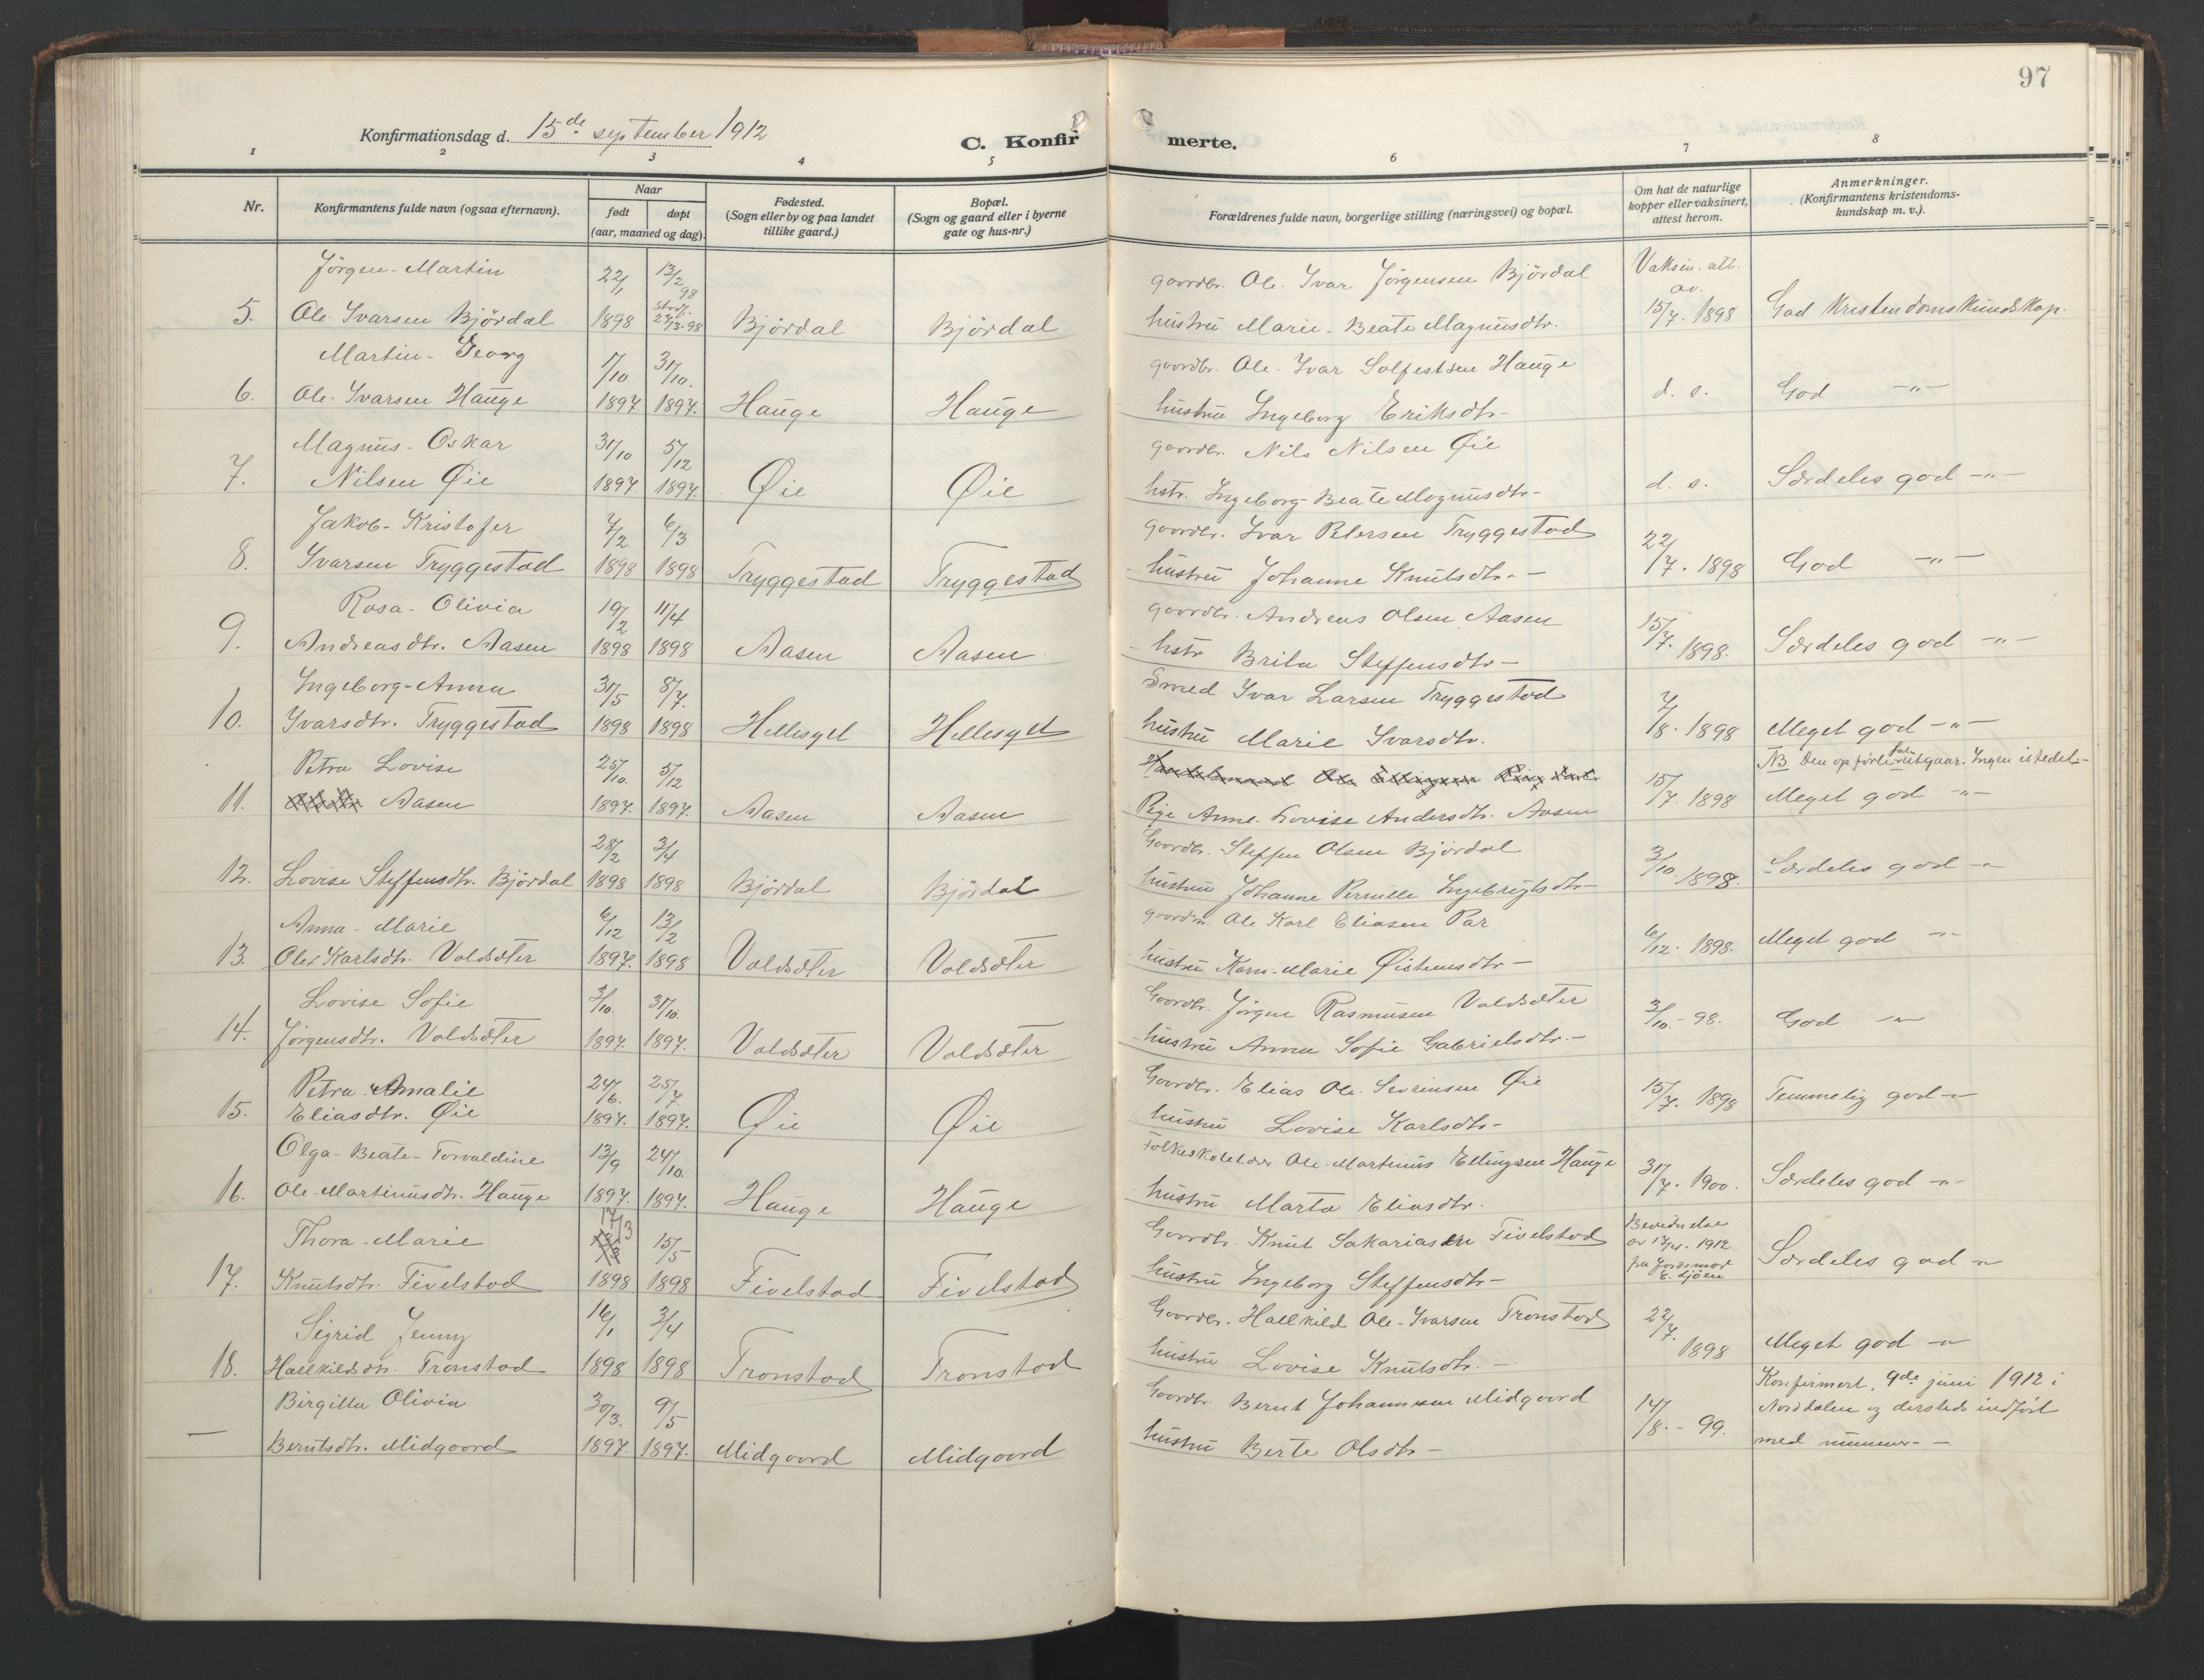 97
Konfirmationsdag d. 15de september 1912
C. Konfirmerte.
1 2 3 4 5 6 7 8
Nr.
Konfirmantens fulde navn (ogsaa efternavn).
Naar
født
døpt
(aar, maaned og dag).
Fødested.
(Sogn eller by og paa landet
tillike gaard.)
Bopæl.
(Sogn og gaard eller i byerne
gate og hus-nr.)
Forældrenes fulde navn, borgerlige stilling (næringsvei) og bopæl.
Om hat de naturlige
kopper eller vaksinert,
attest herom.
Anmerkninger.
(Konfirmantens kristendoms-
kundskap m. v.).
Jörgen-Martin 22/1 13/2 98 goordbr. Ole-Ivar Jörgensen Björdal Vaksin. att. av.
5. Ole-Ivarsen Björdal 1898 27/3-98 Björdal Björdal hustru Marie-Beate Magnusdtr. 15/7. 1898 God Kristendomskundskap.
Martin-Georg 1/10 31/10. goordbr. Ole-Ivar Solfestsen Hauge
6. Ole-Ivarsen Hauge 1897 1897. Hauge Hauge hustru Ingeborg Eriksdtr- d. s. God -"-
Magnus-Oskar 31/10 5/12 goordbr. Nils Nilsen Øie
7. Nilsen Øie 1897 1897. Øie Øie hstr. Ingeborg-Beate Magnusdtr- d. s. Særdeles god -"-
Jakob-Kristofer 7/2 6/3 goordbr. Ivar Petersen Tryggestad 22/7. 1898
8. Ivarsen Tryggestad 1898 1898 Tryggestad Tryggestad hustru Johanne Knutsdtr.- God -"-
Rosa-Olivia 19/2 11/4 goordbr. Andreas Olsen Aasen
9. Andreasdtr. Aasen 1898 1898 Aasen Aasen hstr Brita Steffensdtr- 15/7. 1898. Særdeles god -"-
Ingeborg-Anna 31/5 8/7. Smed Ivar Larsen Tryggestad
10. Ivarsdtr. Tryggestad 1898 1898 Hellesylt Hellesylt hustru Marie Ivarsdtr. 7/8. 1898 Meget god -"-
Petra Lovise 25/10. 5/12 NB Den opförte far utgaar. Ingen istedet.-
11. Aasen 1897. 1897. Aasen Aasen Pige Anne-Lovise Andersdtr. Aasen 15/7. 1898 Meget god -"-
28/2 3/4 Goordbr. Steffen Olsen Björdal
12. Lovise Steffensdtr. Björdal 1898 1898 Björdal Björdal hustru Johanne Pernille Ingebrigtsdtr- 3/10. 1898. Særdeles god -"-
Anna-Marie 6/12 13/2 goordm. Ole Karl Eliasen Par
13. Ole-Karlsdtr. Voldsæter 1897. 1898 Voldsæter Voldsæter hustru Karn-Marie Øistensdtr- 6/12. 1898. Meget god -"-
Lovise Sofie 3/10. 31/10. Goordbr. Jörgen Rasmusen Voldsæter
14. Jörgensdtr. Voldsæter 1897. 1897. Voldsæter Voldsæter hustru Anna Sofie Gabrielsdtr.- 3/10.-98. God -"-
Petra-Amalie 24/6. 25/7. Goordbr. Elias Ole-Severinsen Øie
15. Eliasdtr. Øie 1897. 1897. Øie Øie hustru Lovise Karlsdtr- 15/7. 1898 Temmelig god -"-
Olga-Beate-Torvaldine 13/9 24/10. Folkeskolelærer Ole-Martinus Ellingsen Hauge
16. Ole-Martinusdtr. Hauge 1897. 1897. Hauge Hauge hustru Marta Eliasdtr. 31/7. 1900. Særdeles god -"-
Thora-Marie 17/3 15/5 Goordbr. Knut Sakariasen Fivelstad Bevidnelse av 17/4. 1912
17. Knutsdtr. Fivelstad 1898 1898 Fivelstad Fivelstad hustru Ingeborg Steffensdtr- fra Jordemor E. Sjöen Særdeles god -"-
Sigrid Jenny 16/1 3/4 Goordbr. Hallkild Ole-Ivarsen Tronstad 22/7.
18. Hallkildsdtr. Tronstad 1898 1898 Tronstad Tronstad hustru Lovise Knutsdtr.- 1898 Meget god -"-
Birgitta Olivia 30/3. 9/5 Goordbr. Bernt Johannesen Midgaard 14/8.-99. Konfirmert 9de juni 1912 i
- Berntsdtr. Midgaard 1897. 1897. Midgaard Midgaard hustru Berte Olsdtr- Norddalen og dersteds indført
med nummer- -